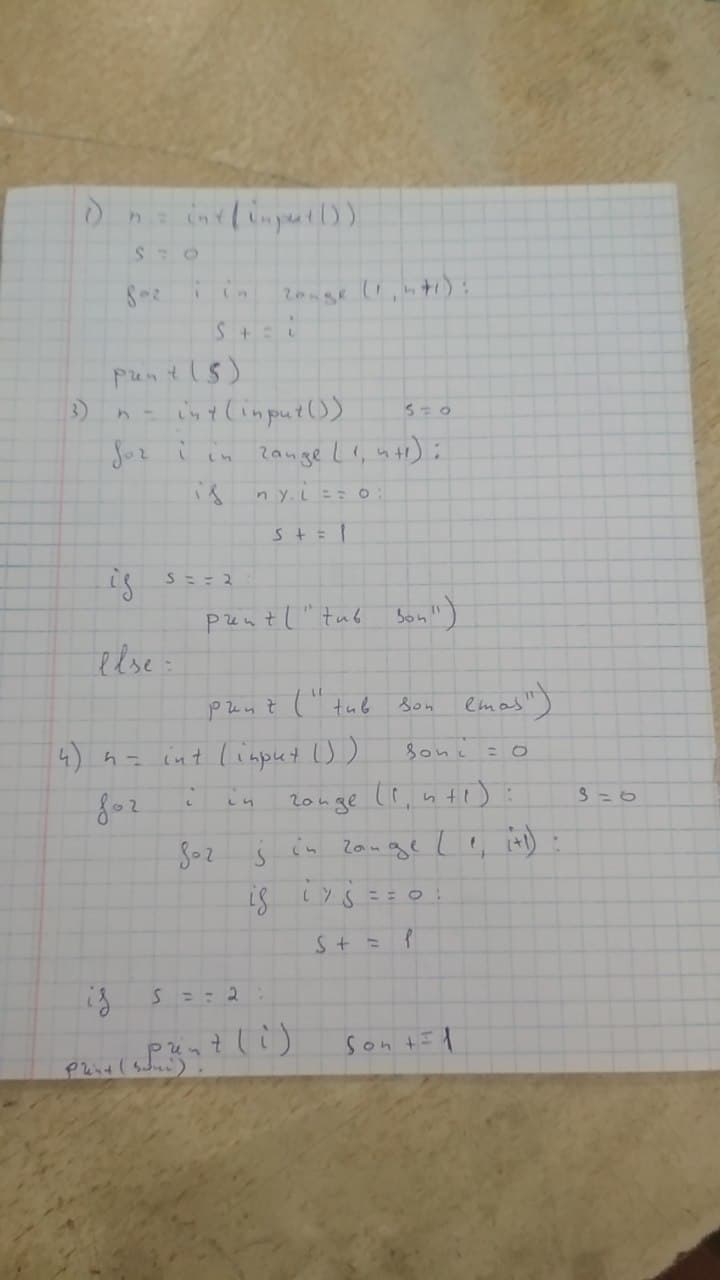 1) n = int(input())
s = 0
for i in range(1, n+1):
s += i
print(s)
3) n = int(input()) s=0
for i in range(1, n+1):
if n % i == 0:
s += 1
if s == 2:
print("tub son")
else:
print("tub son emas")
4) n = int(input()) soni = 0
for i in range(1, n+1): s=0
for j in range(1, i+1):
if i % j == 0:
s += 1
if s == 2:
print(i) son += 1
print(soni).